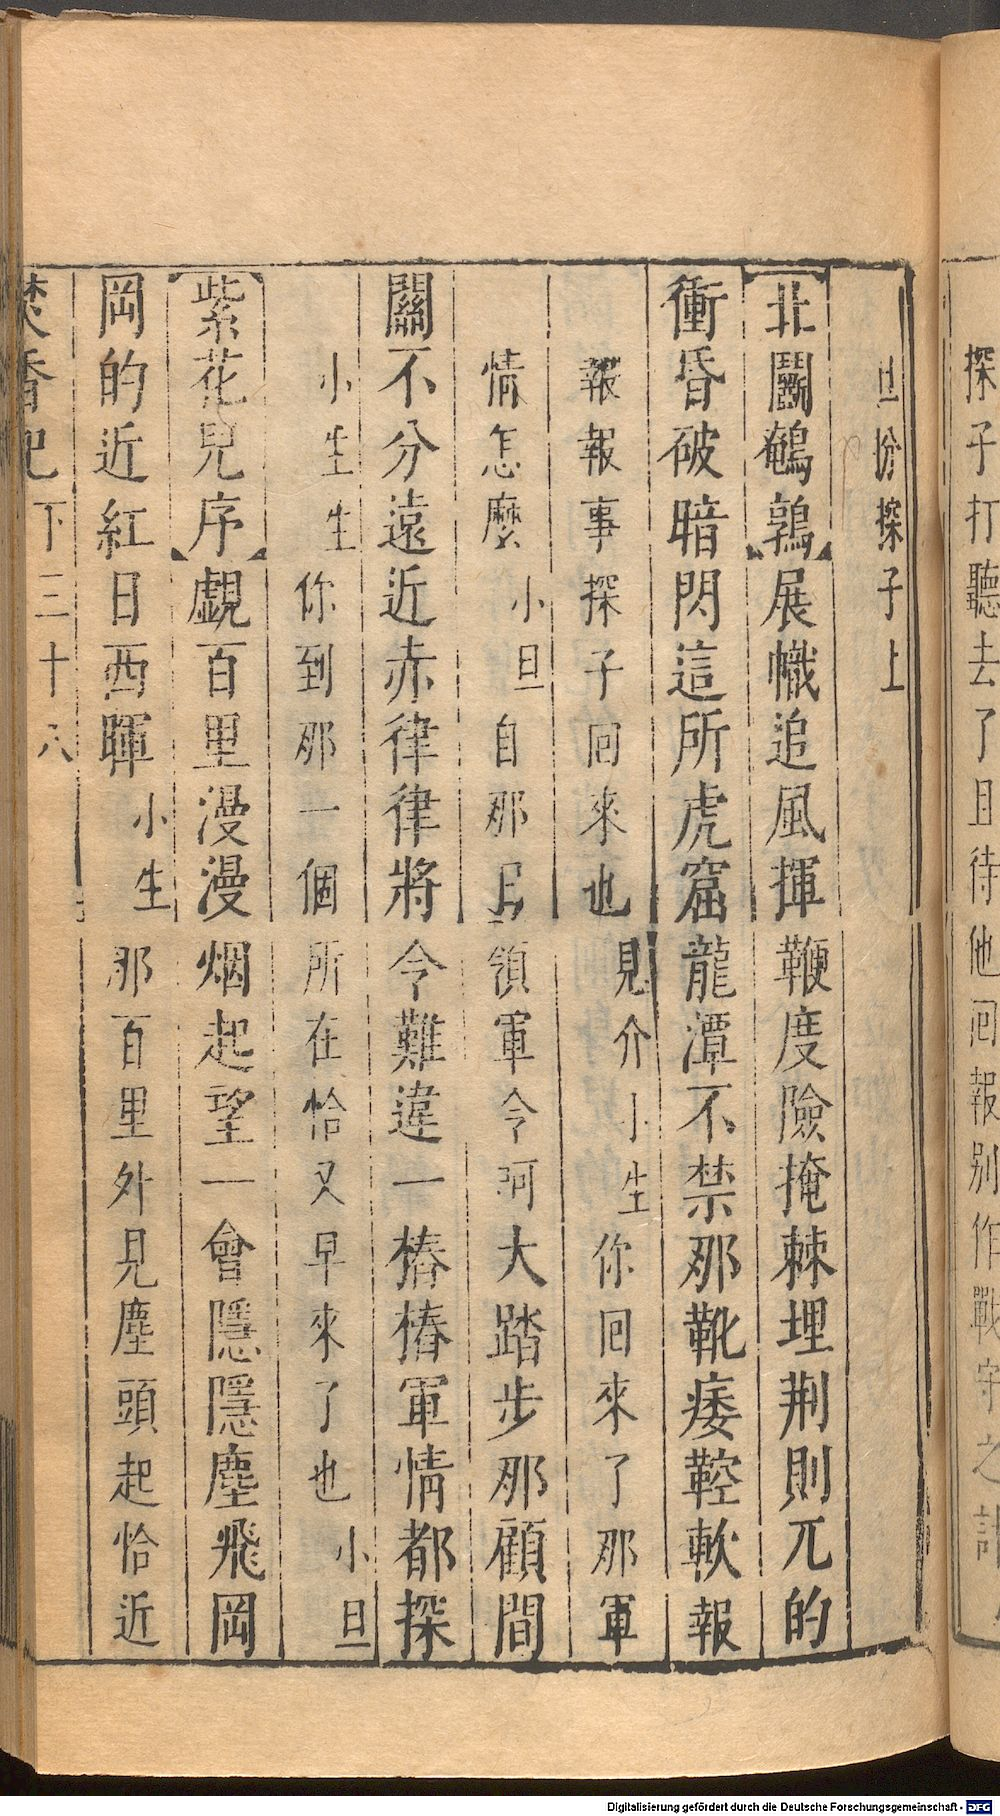 探子打聽去了且待他囘報別作戰守之計
旦扮探子上
北鬭鵪鶉展幟追風揮鞭度險掩棘埋荆則兀的
衝昏破暗閃這所虎窟龍潭不禁那靴痿鞚軟報
報報事探子囘來也見介小生你回來了那軍
情怎麼小旦自那日領軍令呵大踏步那顧間
關不分遠近赤律律將令難違一樁樁軍情都探
小生生你到那一個所在恰又早來了也小旦
紫花兒序覷百里漫漫烟起望一會隱隱塵飛岡
岡的近紅日西暉小生那百里外見塵頭起恰近
焚香記下三十八
Digitalisierung gefördert durch die Deutsche Forschungsgemeinschaft - DFG